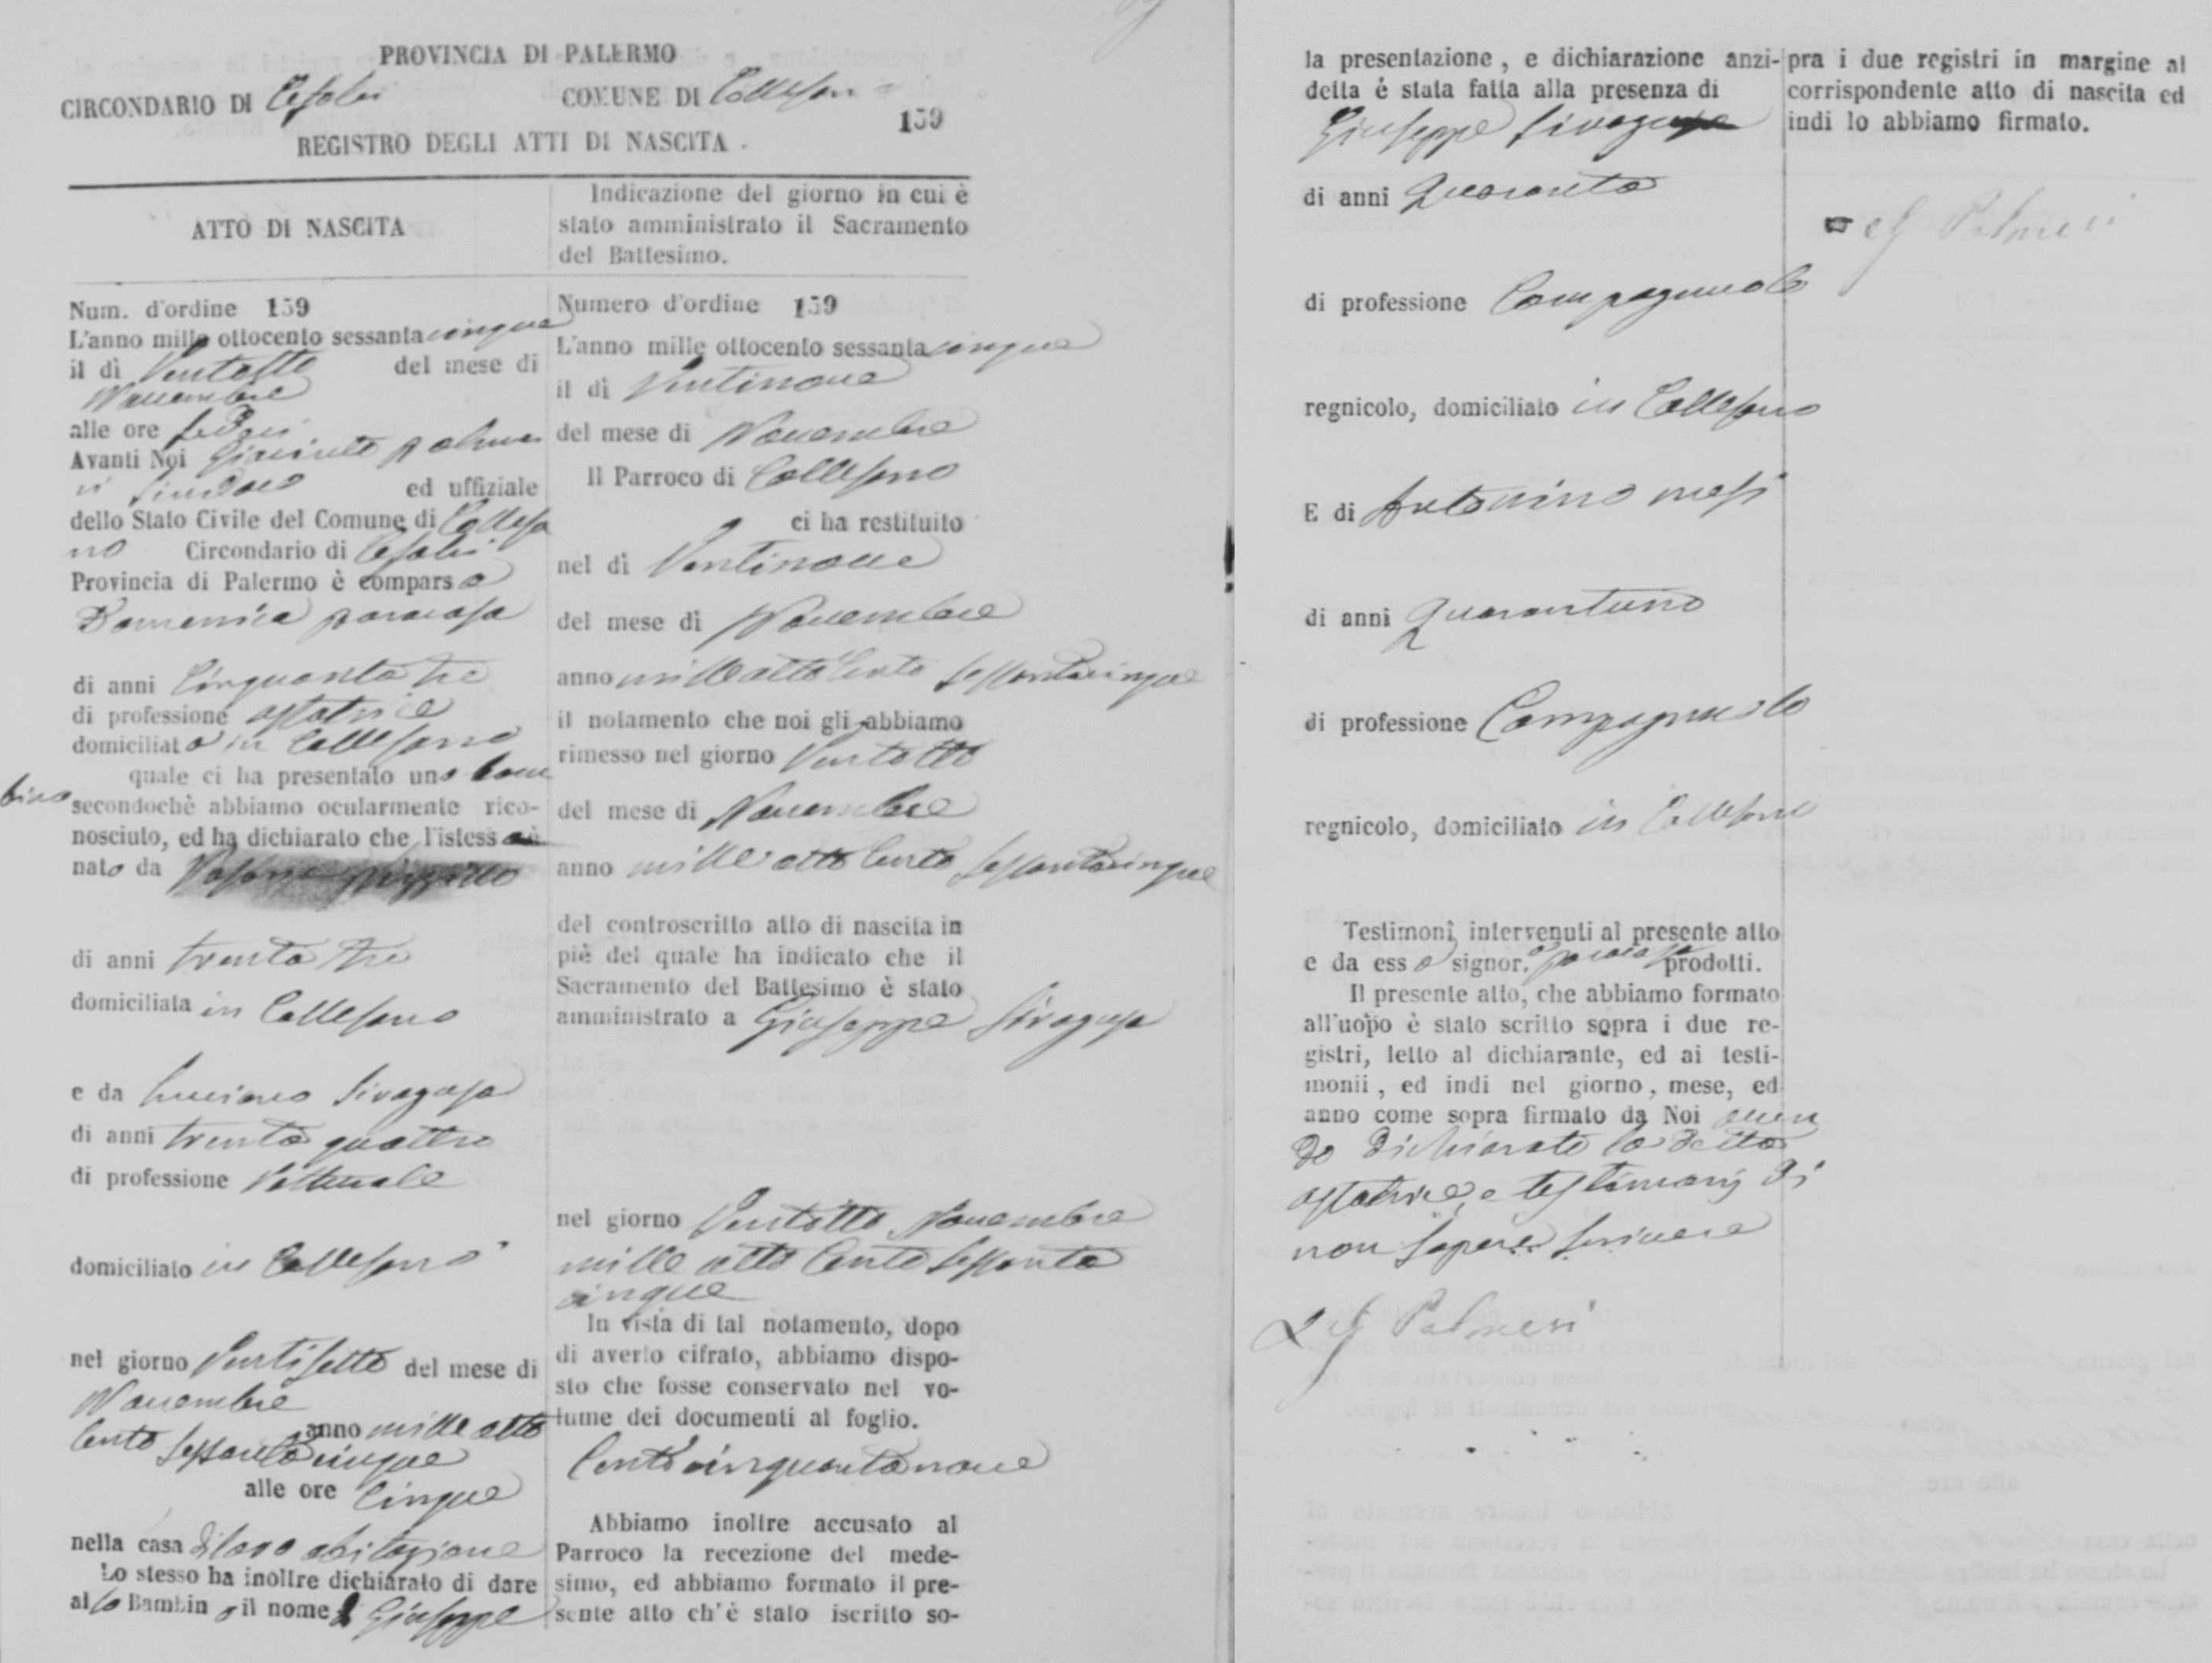 PROVINCIA DI PALERMO
CIRCONDARIO DI Cefalù COMUNE DI Collesano
159
REGISTRO DEGLI ATTI DI NASCITA.
ATTO DI NASCITA
Num. d'ordine 159
L'anno mille ottocento sessantacinque
il dì Ventotto del mese di
Novembre
alle ore sedici
Avanti Noi Giacinto Palmer
i Sindaco ed uffiziale
dello Stato Civile del Comune di Collesa
no Circondario di Cefalù
Provincia di Palermo è comparsa
Domenica
di anni Cinquanta tre
di professione ostatrice
domiciliata in Collesano
quale ci ha presentato uno bam
bino secondochè abbiamo ocularmente rico-
nosciuto, ed ha dichiarato che l'istesso è
nato da
di anni trenta tre
domiciliata in Collesano
e da Luciano Siragusa
di anni trenta quattro
di professione
domiciliato in Collesano
nel giorno Ventisette del mese di
Novembre
anno mille otto
cento sessantacinque
alle ore Cinque
nella casa di loro abitazione
Lo stesso ha inoltre dichiarato di dare
allo Bambino il nome di Giuseppe
Indicazione del giorno in cui è
stato amministrato il Sacramento
del Battesimo.
Numero d'ordine 159
L'anno mille ottocento sessantacinque
il dì Ventinove
del mese di Novembre
Il Parroco di Collesano
ci ha restituito
nel dì Ventinove
del mese di Novembre
anno mille otto Cento sessantacinque
il notamento che noi gli abbiamo
rimesso nel giorno Ventotto
del mese di Novembre
anno mille otto Cento sessantacinque
del controscritto atto di nascita in
piè del quale ha indicato che il
Sacramento del Battesimo è stato
amministrato a Giuseppe Siragusa
nel giorno Ventotto Novembre
mille otto Cento sessanta
cinque
In vista di tal notamento, dopo
di averlo cifrato, abbiamo dispo-
sto che fosse conservato nel vo-
lume dei documenti al foglio.
Centocinquantanove
Abbiamo inoltre accusato al
Parroco la recezione del mede-
simo, ed abbiamo formato il pre-
sente atto ch'è stato iscritto so-
la presentazione, e dichiarazione anzi-
detta è stata fatta alla presenza di
Giuseppe
di anni Quaranta
di professione Campagnuolo
regnicolo, domiciliato in Collesano
E di Antonino
di anni Quarantuno
di professione Campagnuolo
regnicolo, domiciliato in Collesano
Testimonî intervenuti al presente atto
e da essa signora prodotti.
Il presente atto, che abbiamo formato
all'uopo è stato scritto sopra i due re-
gistri, letto al dichiarante, ed ai testi-
monii, ed indi nel giorno, mese, ed
anno come sopra firmato da Noi aven
do dichiarato la detta
ostatrice, e testimonj di
non sapere scrivere
G Palmeri
pra i due registri in margine al
corrispondente atto di nascita ed
indi lo abbiamo firmato.
G Palmeri